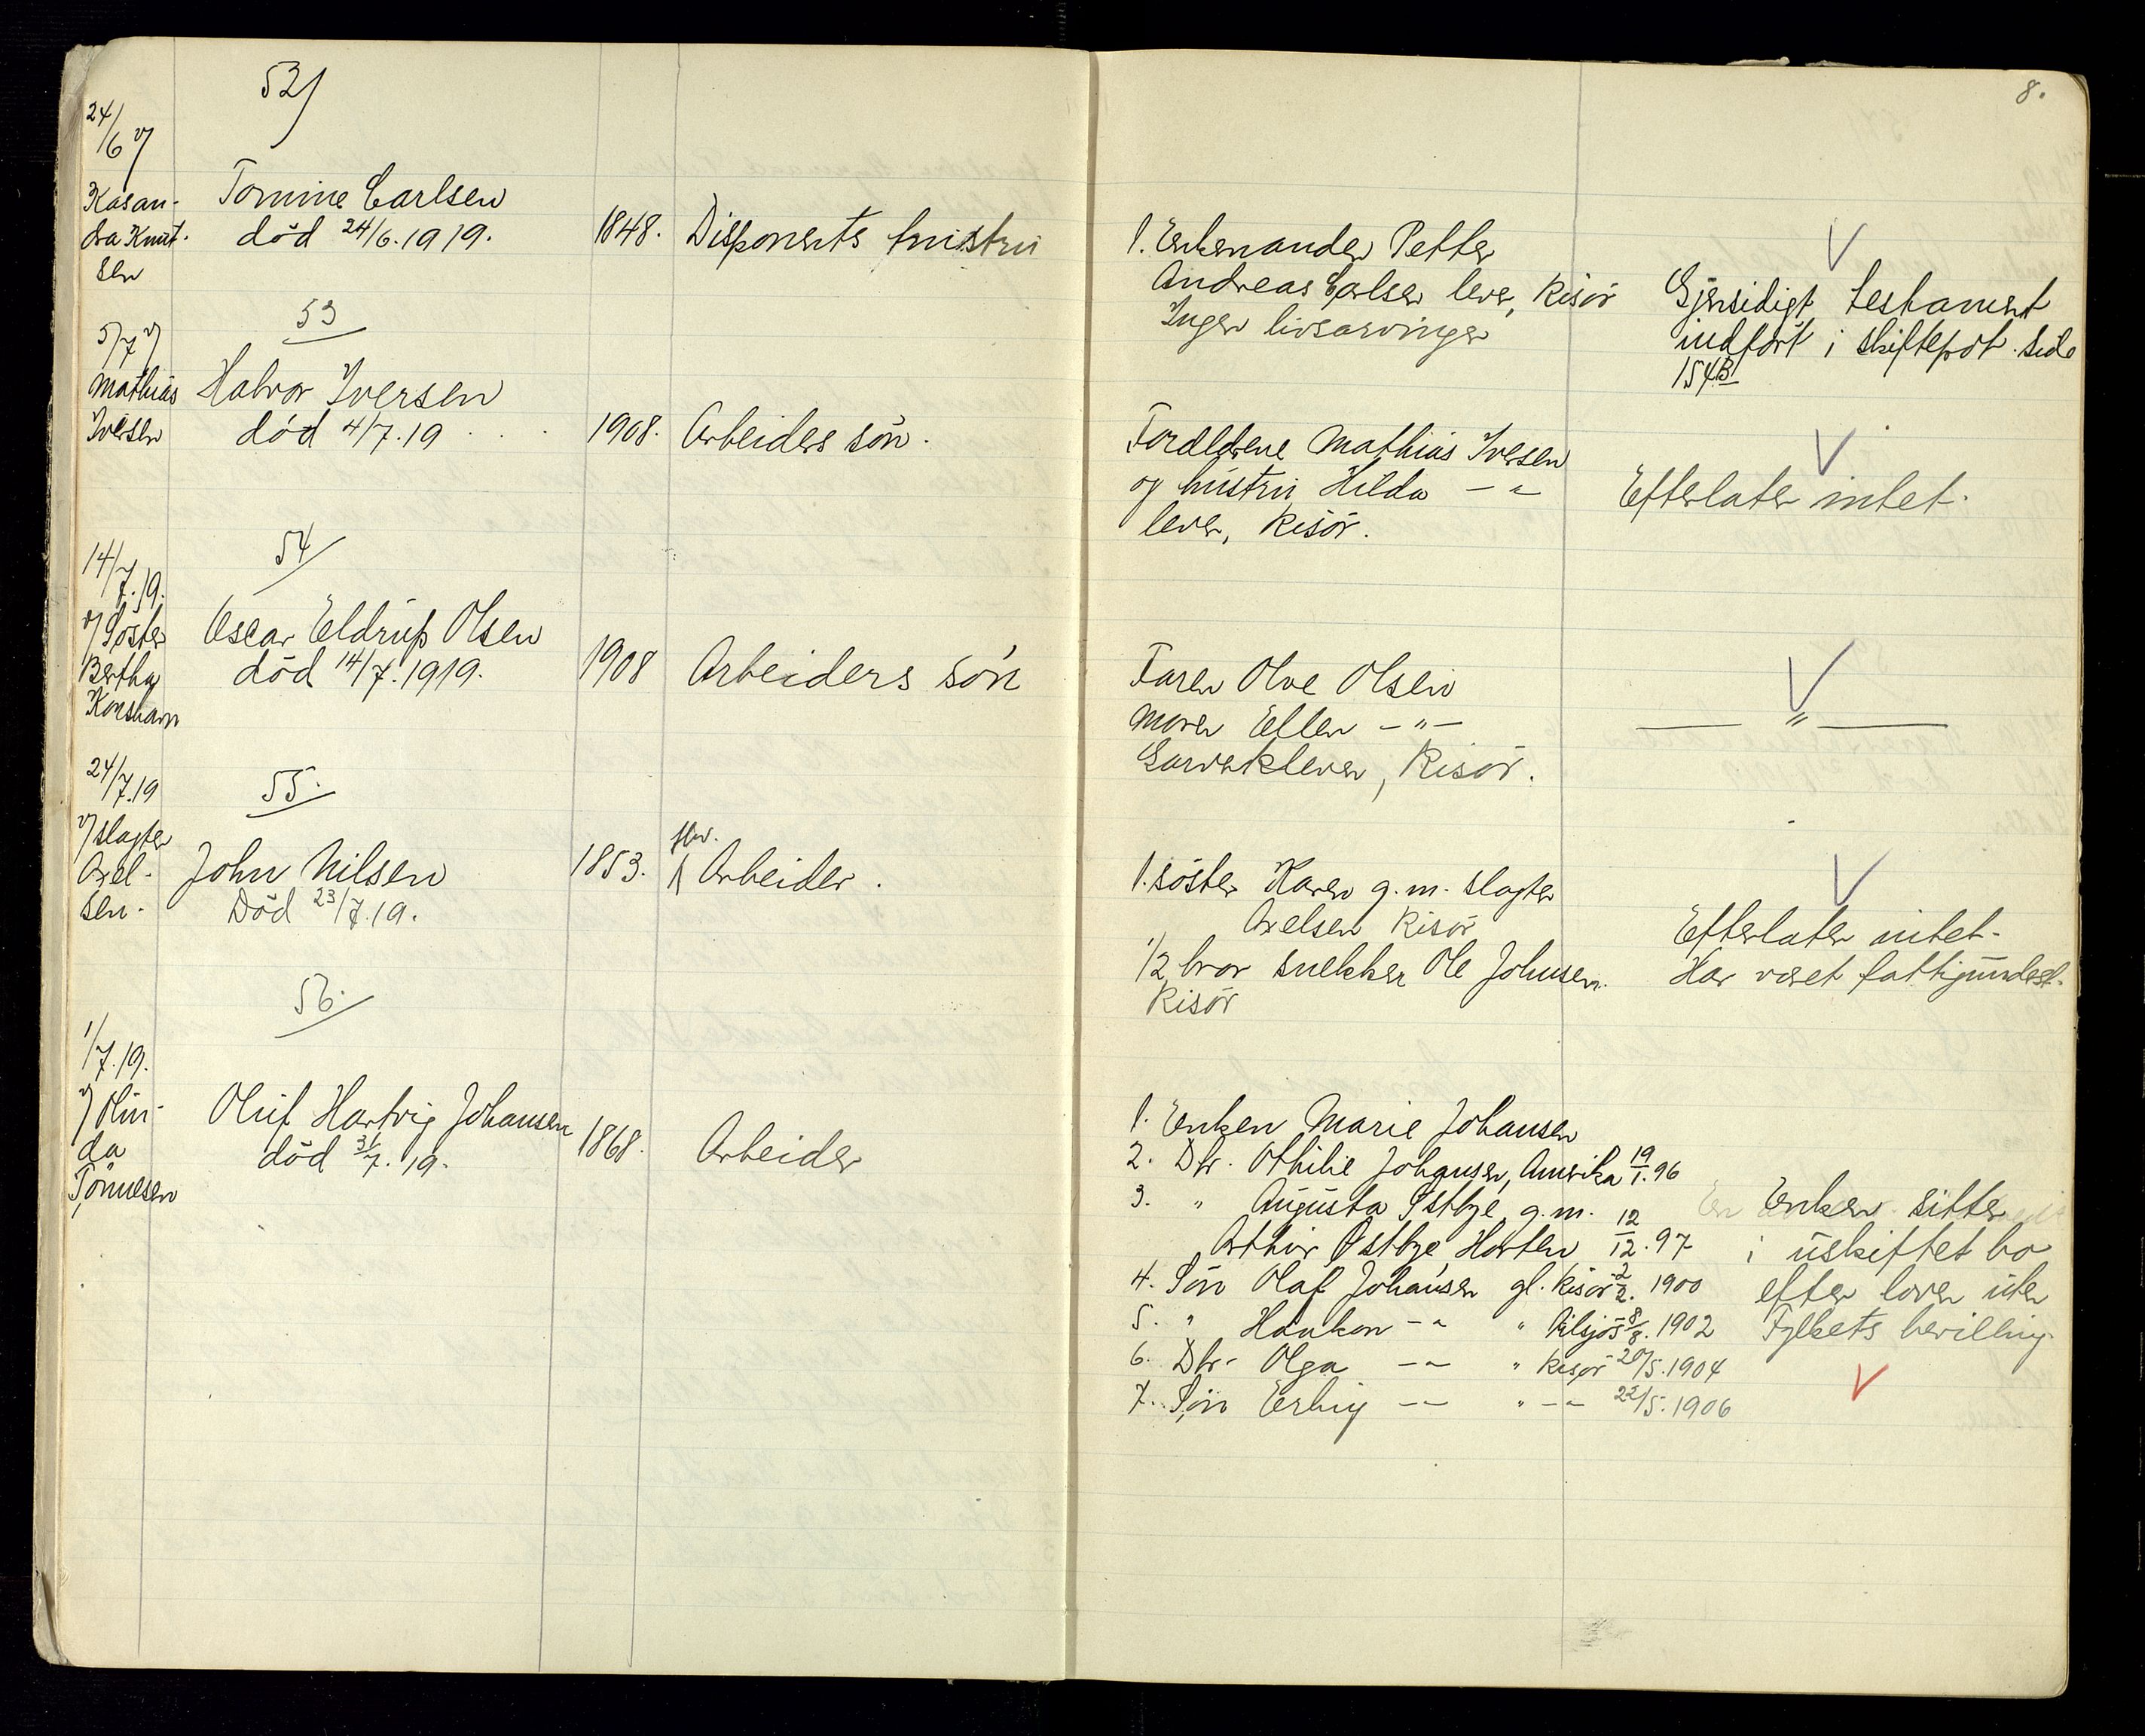 8.
52)
24/6 v/
Kasan-
dra Knut-
sen
Tomine Carlsen
död 24/6.1919.
1848.
Disponents hustru
1. Enkemanden Petter
Andreas Carlsen lever, Risör
Ingen livsarvinger
Gjensidigt testament
indført i skifteprot. side
154B
53
5/7 v/
Mathias
Iversen
Halvor Iversen
död 4/7.19
1908.
Arbeiders sön.
Forældrene Mathias Iversen
og hustru Hilda — " 
lever, Risör.
Efterlater intet.
54
14/7.19.
v/ Söster
Bertha
Korshavn
Oscar Eldrup Olsen
död 14/7.1919.
1908
Arbeiders sön
Faren Olve Olsen
Moren Ellen — " —
Risör.
— " —
55.
24/7.19
v/ slagter
Axel-
sen.
John Nilsen
Död 23/7.19.
1853.
Arbeider.
1. söster Karen g.m. slagter
Axelsen Risör
1/2 bror snekker Ole Johnsen.
Risör
Efterlater intet.
Har været fattigunderst.
56.
1/7.19.
v/ Olin-
da
Tönnesen
Oluf Hartvig Johansen
död 31/7.19.
1868.
Arbeider
1. Enken Marie Johansen
2. Dtr. Othilie Johansen, Amerika 19/1.96
3. " Augusta Østbye g.m.
Arthur Østbye Horten 12/12.97
4. Sön Olaf Johansen gl. Risör 2/2. 1900
5. " Haakon — " " 8/8. 1902
6. Dtr. Olga — " " Risør 20/5.1904
7. Sön Erling — " " — " 22/5.1906
Enken sitter
i uskiftet bo
efter loven uten
Fylkets bevilling.